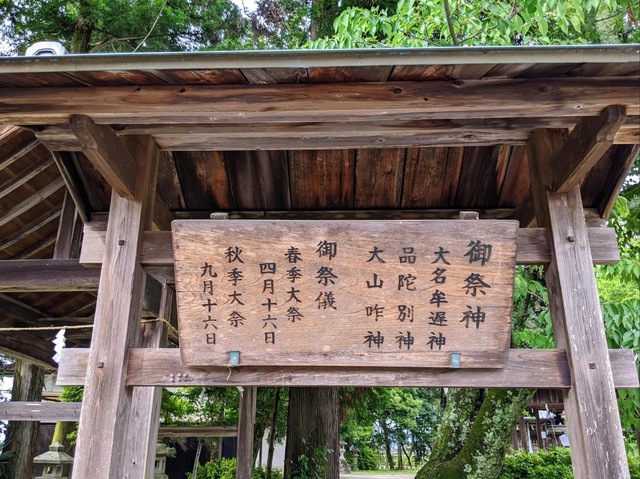 御祭神
大名牟遅神
品陀別神
大山咋神
御祭儀
春季大祭
四月十六日
秋季大祭
九月十六日